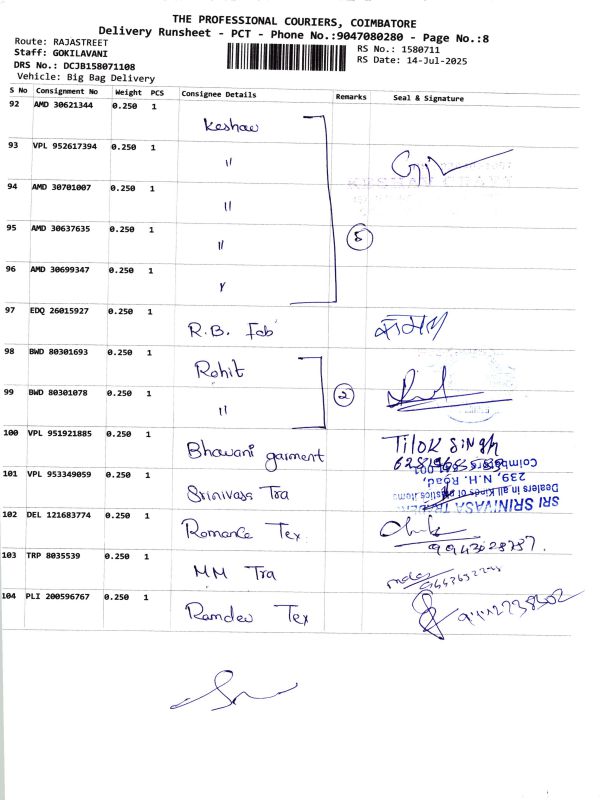 THE PROFESSIONAL COURIERS, COIMBATORE
Delivery Runsheet - PCT - Phone No.:9047080280 - Page No.:8
Route: RAJASTREET
RS No.: 1580711
Staff: GOKILAVANI
RS Date: 14-Jul-2025
DRS No.: DCJB158071108
Vehicle: Big Bag Delivery
S No Consignment No Weight PCS Consignee Details Remarks Seal & Signature
92 AMD 30621344 0.250 1 Keshav
93 VPL 952617394 0.250 1 〃
94 AMD 30701007 0.250 1 〃
95 AMD 30637635 0.250 1 〃 5
96 AMD 30699347 0.250 1 〃
97 EDQ 26015927 0.250 1 R.B. Fab
98 BWD 80301693 0.250 1 Rohit
99 BWD 80301078 0.250 1 〃 2
100 VPL 951921885 0.250 1 Bhawani garment TILOK SINGH
101 VPL 953349059 0.250 1 Srinivasa Tra
SRI SRINIVASA
Dealers in all Kinds of
239, N.H. Road,
Coimbatore
102 DEL 121683774 0.250 1 Romance Tex.
103 TRP 8035539 0.250 1 MM Tra
104 PLI 200596767 0.250 1 Ramdev Tex